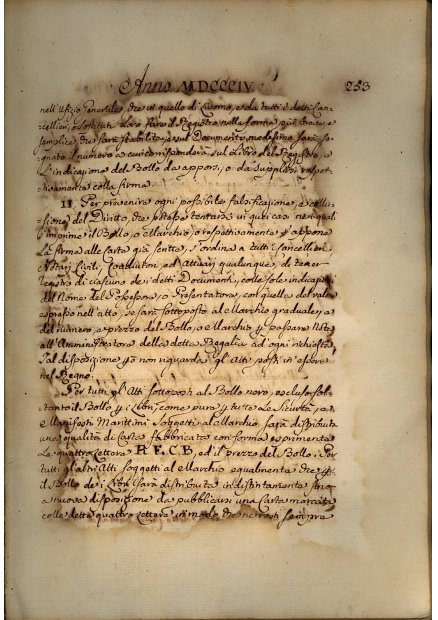 Anno MDCCCIV. 253
nell'Ufizio Generale, che è quello di Livorno, e da tutti i detti Can-
cellieri, o Sostituti
semplice, che sarà stabilita, e sul Documento medesimo sarà se-
gnato il numero a cui corrisponderà sul Libro del Registro, e
l'indicazione del Bollo da apporsi, o da supplirsi rispet-
tivamente colla firma.
II. Per prevenire ogni possibile falsificazione, e
sione del Diritto, che potesse tentarsi in quei casi nei quali
s'imprime il Bollo, o Marchio, o respettivamente si appone
la firma alle Carte già scritte, s'ordina a tutti i Cancellieri
Notari Civili, Coadiutori, ed Attuari qualunque, di tener
registro di ciascuno dei detti Documenti, colle sole indicazioni
del Nome del Possessore, o Presentatore, con quella del valore
espresso nell'atto, se sarà sottoposto al Marchio graduale, e
del numero, e prezzo del Bollo, o Marchio, e passare
all'Amministratore della detta Regalia ad ogni richiesta.
Tal disposizione non riguarda gli Atti posti in essere
nel Regno.
Per tutti gl'Atti sottoposti al Bollo nero, escluso sol-
tanto il Bollo i Libri, come pure tutte le Sicurtà, e
Manifesti Marittimi soggetti al Marchio sarà distribuita
una qualità di Carta fabbricata con forma esprimente
le quattro Lettere R. E. C. B, ed il prezzo del Bollo. Per
tutti gl'altri Atti soggetti al Marchio egualmente che
il Bollo dei Libri sarà distribuita indistintamente fino
a nuova disposizione da pubblicarsi una Carta marcata
colle dette quattro Lettere in modo, che ne resti sempre